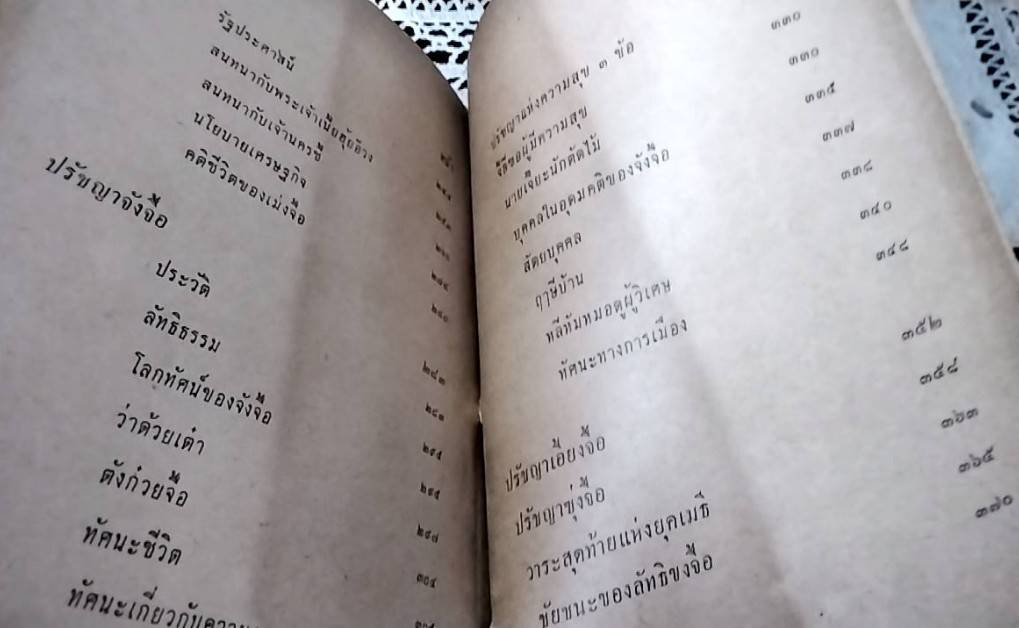 รัฐประศาสน์
สนทนากับพระเจ้าเนี่ยฮุ้ยอ๊วง
สนทนากับเจ้านครชี้
นโยบายเศรษฐกิจ
คติชีวิตของเม่งจื๊อ
ปรัชญาจังจื๊อ
ประวัติ ๒๘๓
ลัทธิธรรม ๒๘๓
โลกทัศน์ของจังจื๊อ ๒๙๔
ว่าด้วยเต๋า ๒๙๕
ตังก๋วยจื๊อ ๒๙๗
ทัศนะชีวิต ๓๐๔
ทัศนะเกี่ยวกับความ
ปรัชญาแห่งความสุข ๓ ข้อ ๓๓๐
วิธีของผู้มีความสุข ๓๓๐
นายเจี๊ยะนักตัดไม้ ๓๓๕
บุคคลในอุดมคติของจังจื๊อ ๓๓๗
สัตยบุคคล ๓๓๘
ฤาษีบ้าน ๓๔๐
หลีทัมหมอดูผู้วิเศษ ๓๔๘
ทัศนะทางการเมือง ๓๕๒
ปรัชญาเอี้ยงจื๊อ ๓๕๘
ปรัชญาซุ่งจื๊อ ๓๖๓
วาระสุดท้ายแห่งยุคเมธี ๓๖๕
ชัยชนะของลัทธิขงจื๊อ ๓๗๐